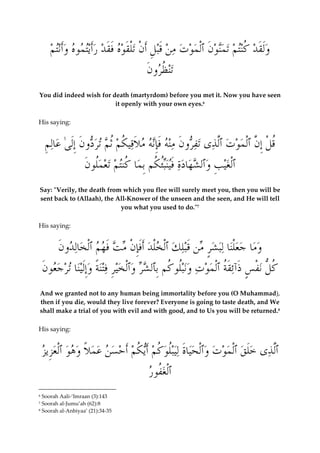 وَلَقَدْ كُنتُمْ تَمَنَّوْنَ ٱلْمَوْتَ مِنْ قَبْلِ أَن تَلْقَوْهُ فَقَدْ رَأَيْتُمُوهُ وَأَنْتُمْ
تَنْظُرُونَ
You did indeed wish for death (martyrdom) before you met it. Now you have seen
it openly with your own eyes.⁶
His saying:
قُلْ إِنَّ ٱلْمَوْتَ ٱلَّذِى تَفِرُّونَ مِنْهُ فَإِنَّهُ مُلاَقِيكُمْ ثُمَّ تُرَدُّونَ إِلَىٰ عَالِمِ
ٱلْغَيْبِ وَٱلشَّهَادَةِ فَيُنَبِّئُكُم بِمَا كُنتُمْ تَعْمَلُونَ
Say: "Verily, the death from which you flee will surely meet you, then you will be
sent back to (Allaah), the All-Knower of the unseen and the seen, and He will tell
you what you used to do."⁷
His saying:
وَمَا جَعَلْنَا لِبَشَرٍ مِّن قَبْلِكَ ٱلْخُلْدَ أَفَإِنْ مِّتَّ فَهُمُ ٱلْخَالِدُونَ
كُلُّ نَفْسٍ ذَآئِقَةُ ٱلْمَوْتِ وَنَبْلُوكُم بِٱلشَّرِّ وَٱلْخَيْرِ فِتْنَةً وَإِلَيْنَا تُرْجَعُونَ
And we granted not to any human being immortality before you (O Muhammad),
then if you die, would they live forever? Everyone is going to taste death, and We
shall make a trial of you with evil and with good, and to Us you will be returned.⁸
His saying:
ٱلَّذِى خَلَقَ ٱلْمَوْتَ وَٱلْحَيَاةَ لِيَبْلُوَكُمْ أَيُّكُمْ أَحْسَنُ عَمَلاً وَهُوَ ٱلْعَزِيزُ
ٱلْغَفُورُ
⁶ Soorah Aali-'Imraan (3):143
⁷ Soorah al-Jumu'ah (62):8
⁸ Soorah al-Anbiyaa' (21):34-35